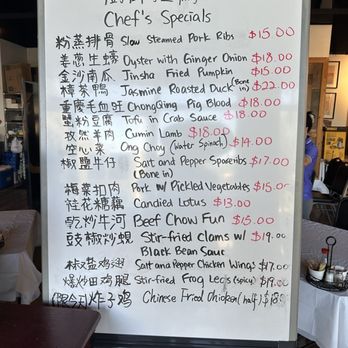 Chef's Specials
粉蒸排骨 Slow Steamed Pork Ribs $15.00
姜葱生蠔 Oyster with Ginger Onion $18.00
金沙南瓜 Jinsha Fried Pumpkin $15.00
樟茶鴨 Jasmine Roasted Duck (Bone in) $22.00
重慶毛血旺 ChongQing Pig Blood $18.00
蟹粉豆腐 Tofu in Crab Sauce $18.00
孜然羊肉 Cumin Lamb $18.00
空心菜 Ong Choy (Water Spinach) $14.00
椒鹽牛仔 Salt and Pepper Spareribs $17.00
(Bone in)
梅菜扣肉 Pork w/ Pickled Vegetables $15.00
桂花糖藕 Candied Lotus $13.00
乾炒牛河 Beef Chow Fun $15.00
豉椒炒蜆 Stir-fried Clams w/ $19.00
Black Bean Sauce
椒盐鸡翅 Salt and Pepper Chicken Wings $17.00
爆炒田鸡腿 Stir-fried Frog Legs (spicy) $19.00
炸子鸡 Chinese Fried Chicken (half) $18.